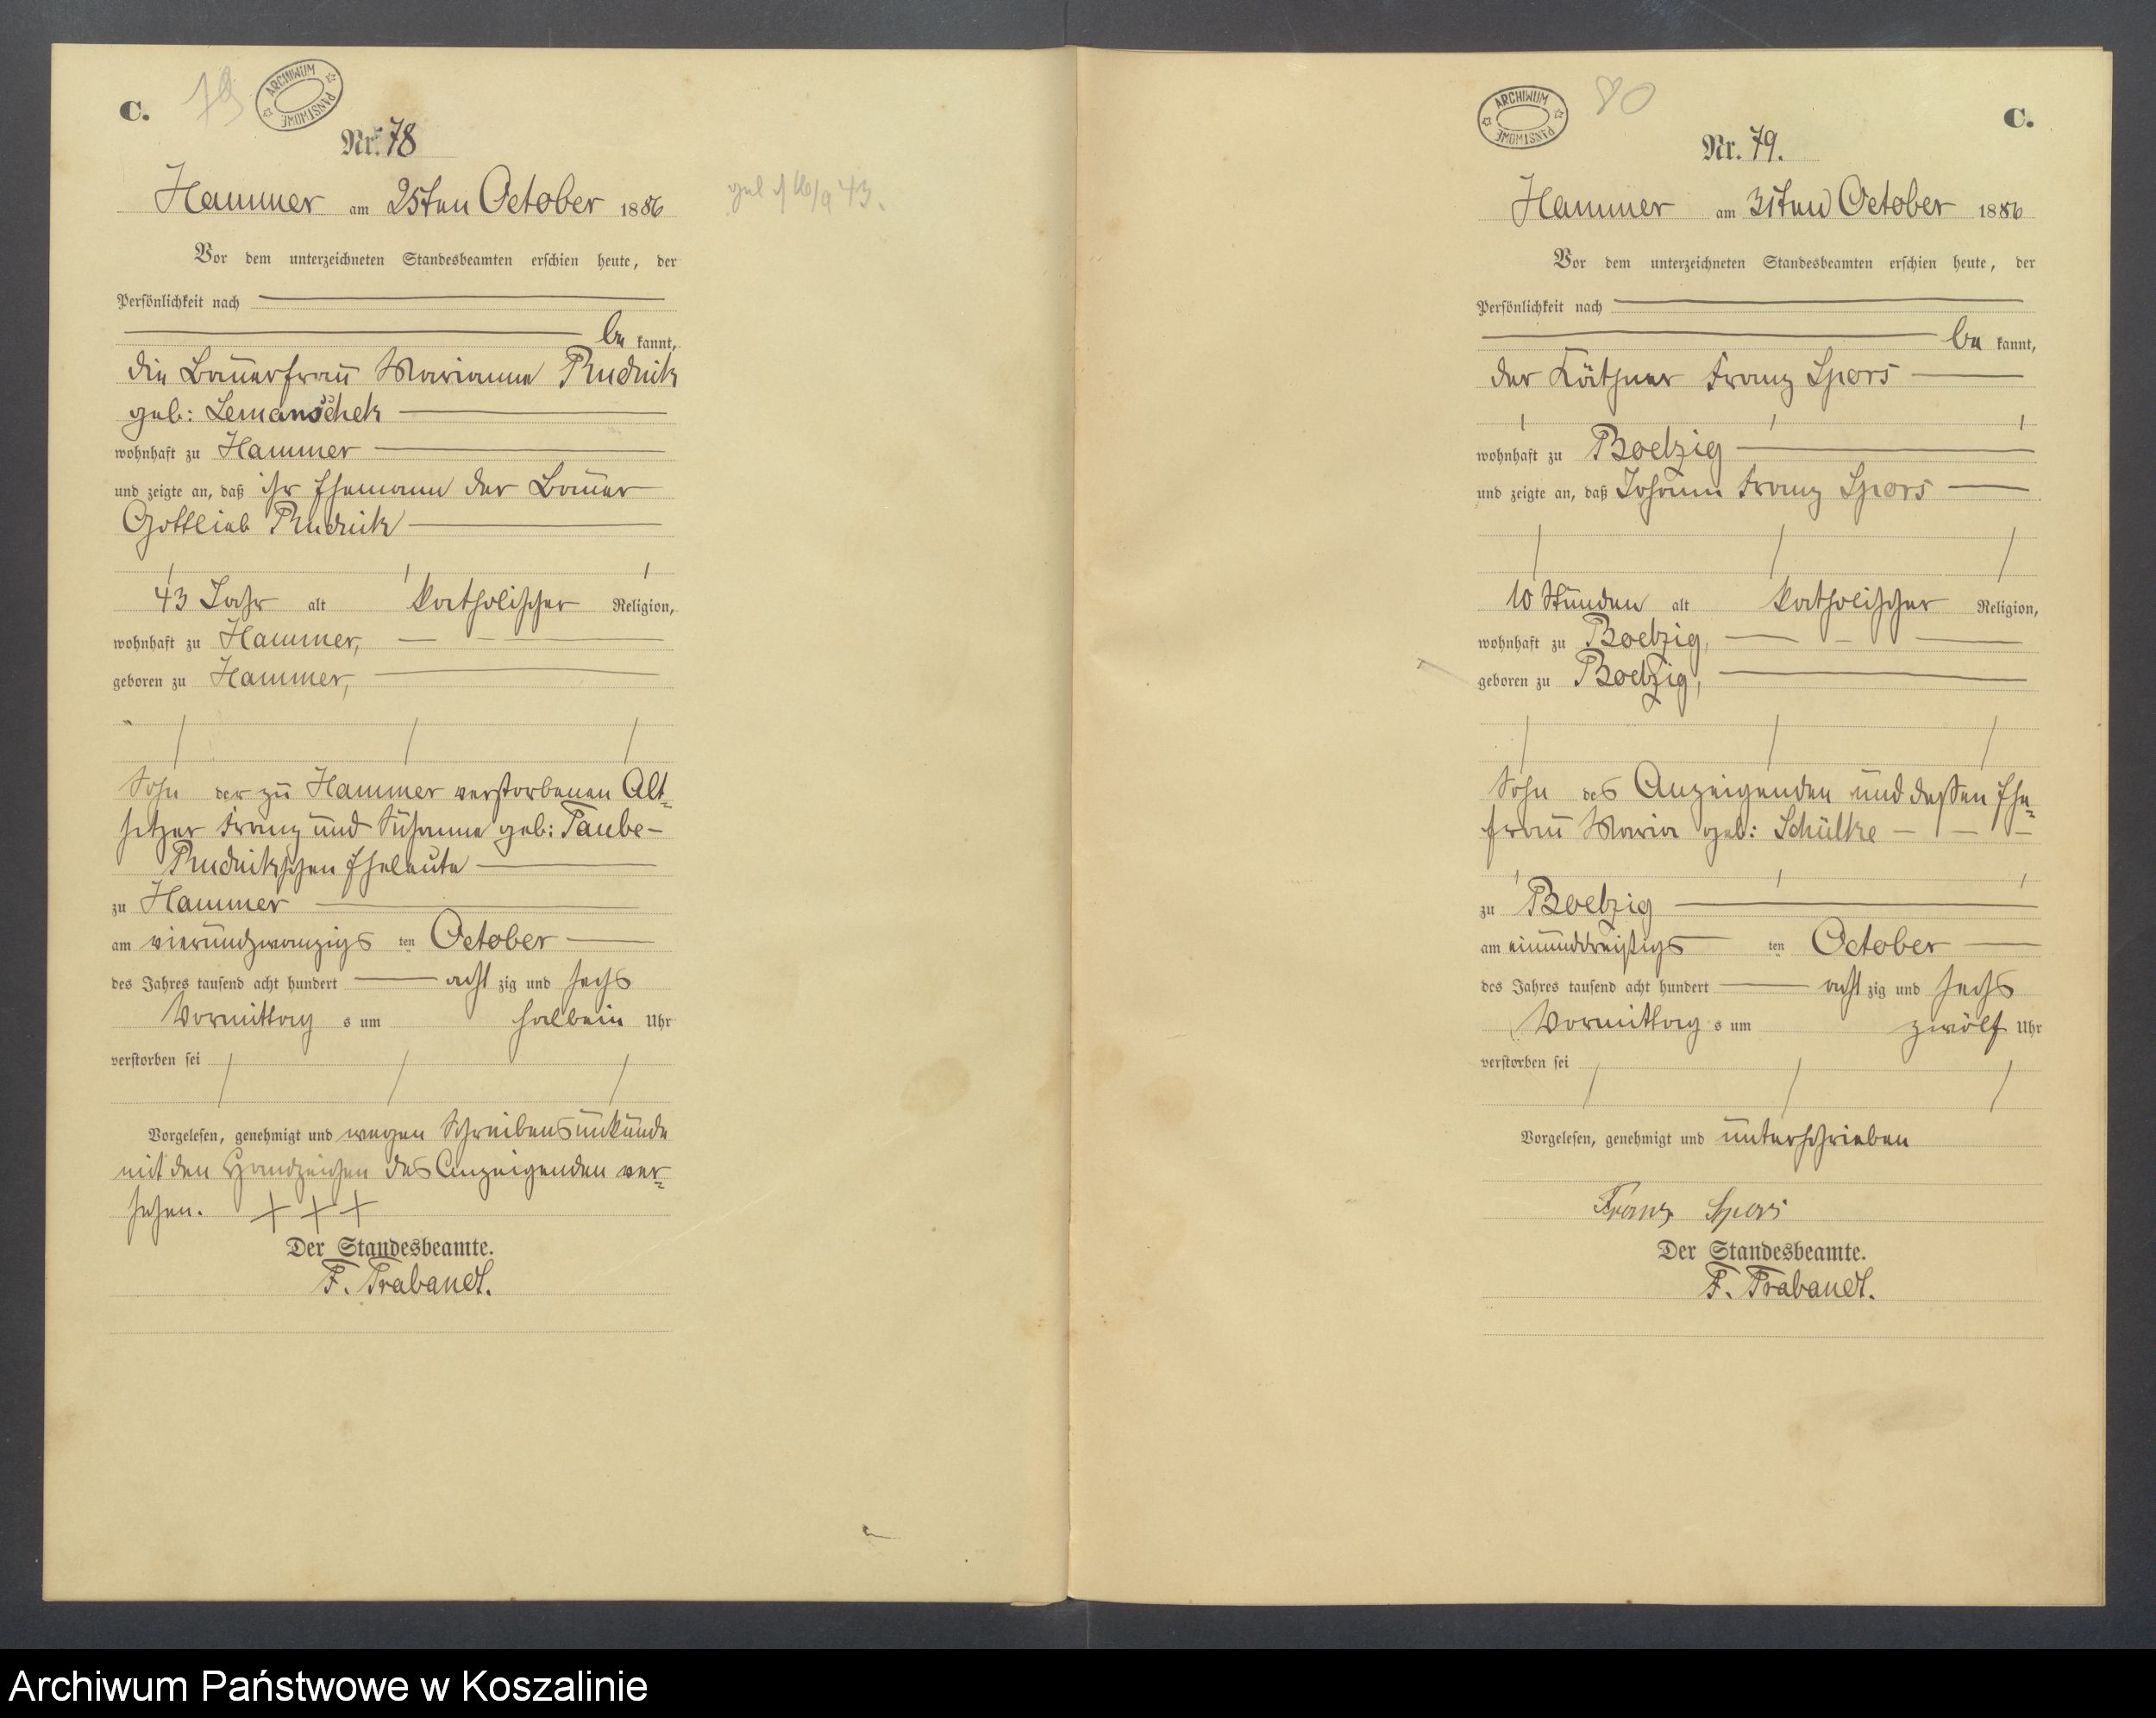 C.
79
ARCHIWUM PAŃSTWOWE
Nr. 78
Hammer am 25ten October 1886
Vor dem unterzeichneten Standesbeamten erschien heute, der
Persönlichkeit nach
be kannt,
die Bauerfrau Marianne Rudnik
geb: Lemanschek
wohnhaft zu Hammer
und zeigte an, daß ihr Ehemann der Bauer
Gottlieb Rudnik
43 Jahr alt katholischer Religion,
wohnhaft zu Hammer,
geboren zu Hammer,
Sohn der zu Hammer verstorbenen Alt-
sitzer Franz und Susanna geb: Taube-
Rudnikschen Eheleute
zu Hammer
am vierundzwanzigs ten October
des Jahres tausend acht hundert acht zig und sechs
Vormittag s um halbein Uhr
verstorben sei
Vorgelesen, genehmigt und wegen Schreibensunkunde
mit den Handzeichen des Anzeigenden ver-
sehen. + + +
Der Standesbeamte.
F. Trabandt.
43.
ARCHIWUM PAŃSTWOWE
80
C.
Nr. 79.
Hammer am 31ten October 1886
Vor dem unterzeichneten Standesbeamten erschien heute, der
Persönlichkeit nach
be kannt,
der Käthner Franz Spors
wohnhaft zu Boetzig
und zeigte an, daß Johann Franz Spors
10 Stunden alt katholischer Religion,
wohnhaft zu Boetzig,
geboren zu Boetzig,
Sohn des Anzeigenden und dessen Ehe-
frau Maria geb: Schülke
zu Boetzig
am einunddreißigs ten October
des Jahres tausend acht hundert acht zig und sechs
Vormittag s um zwölf Uhr
verstorben sei
Vorgelesen, genehmigt und unterschrieben
Franz Spors
Der Standesbeamte.
F. Trabandt.
Archiwum Państwowe w Koszalinie